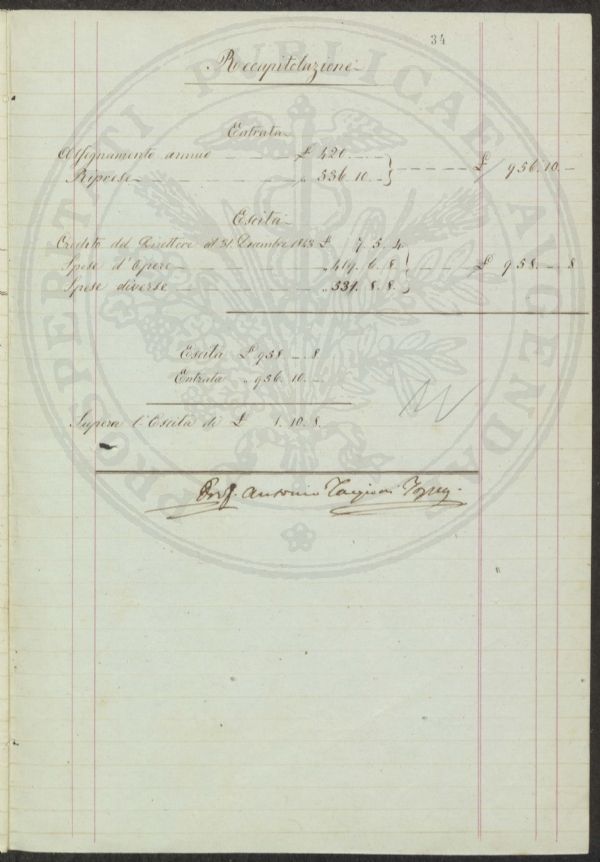 34
PROSPERITATI PUBLICAE AUGENDAE
Recapitolazione
Entrata
Assegnamento annuo £ 420. —
Riprese „ 536. 10. —
£ 956. 10. —
Escita
Credito del Direttore al 31. Dicembre £ 7. 5. 4.
Spese d'Opere „ 419. 6. 8.
£ 958. — 8
Spese diverse „ 531. 8. 8.
Escita £ 958. — 8.
Entrata „ 956. 10. —
Supera l'Escita di £ 1. 10. 8.
Prof. Antonio Targioni